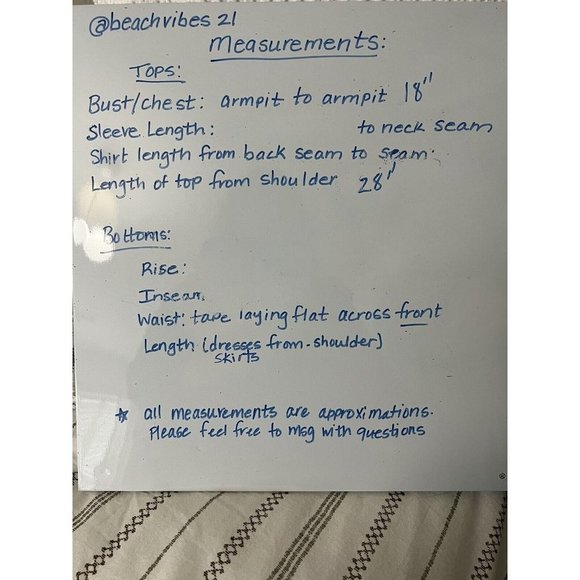 @beachvibes 21
Measurements:
Tops:
Bust/chest: armpit to armpit 18"
Sleeve Length: to neck seam
Shirt length from back seam to seam.
Length of top from shoulder 28"
Bottoms:
Rise:
Inseam
Waist: tape laying flat across front
Length (dresses from-shoulder)
skirts
☆ all measurements are approximations.
Please feel free to msg with questions